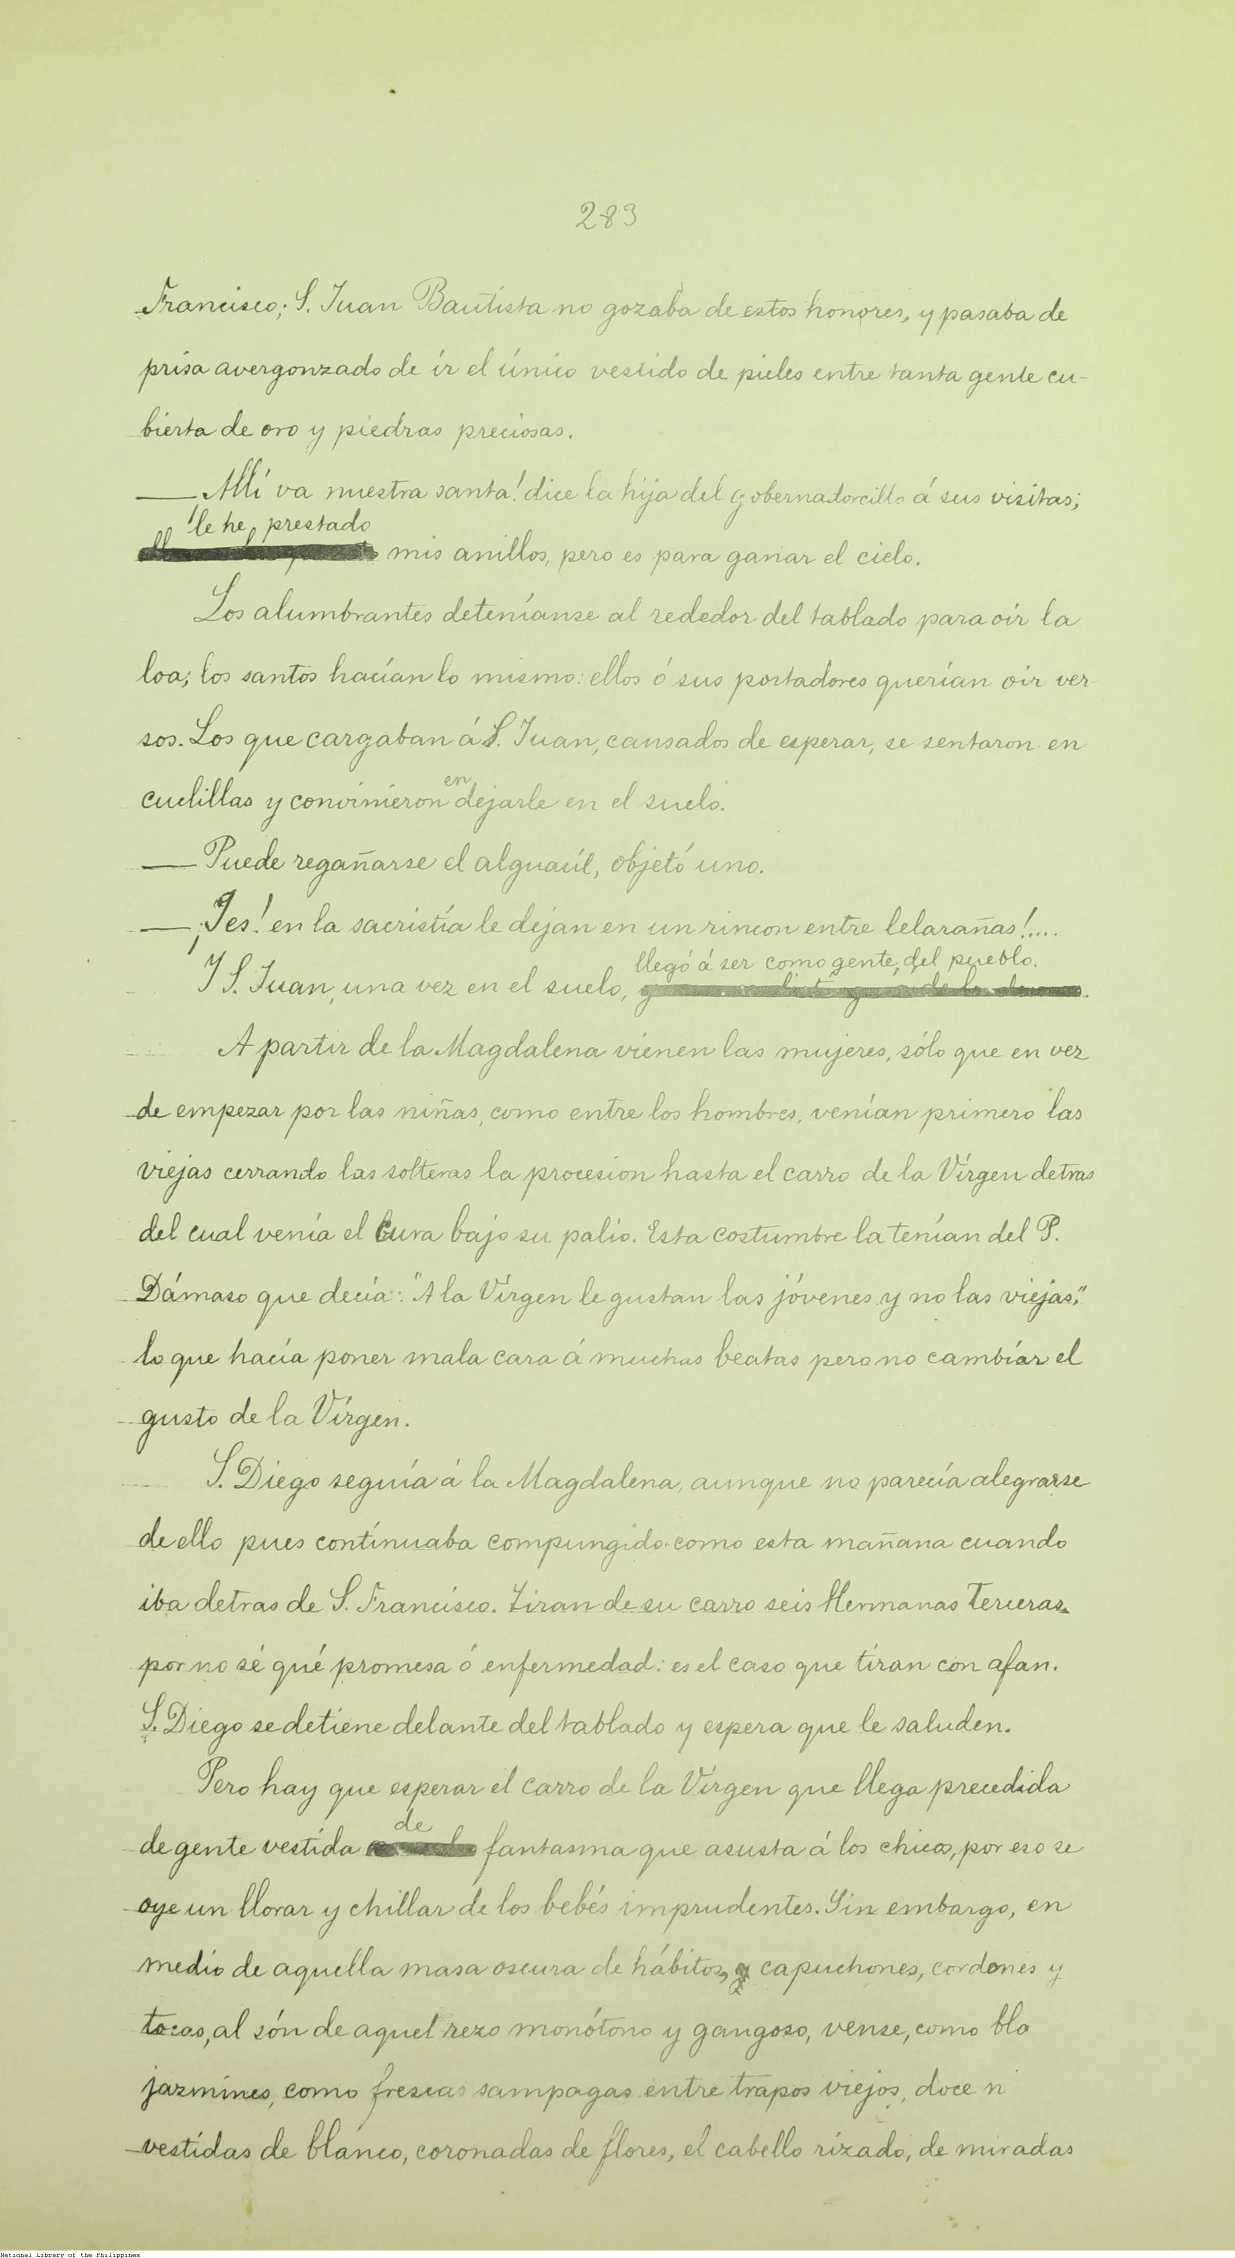 283
Francisco; S. Juan Bautista no gozaba de estos honores, y pasaba de
prisa avergonzado de ir el único vestido de pieles entre tanta gente cu-
bierta de oro y piedras preciosas.
— Allí va nuestra santa! dice la hija del gobernadorcillo á sus visitas;
le he prestado
mis anillos, pero es para ganar el cielo.
Los alumbrantes deteníanse al rededor del tablado para oir la
loa; los santos hacían lo mismo: ellos ó sus portadores querían oir ver-
sos. Los que cargaban á S. Juan, cansados de esperar, se sentaron en
en
cuclillas y convinieron dejarle en el suelo.
— Puede regañarse el alguacil, objetó uno.
— ¡Jes! en la sacristía le dejan en un rincon entre telarañas!....
llegó á ser como gente del pueblo.
Y S. Juan, una vez en el suelo,
A partir de la Magdalena vienen las mujeres, sólo que en vez
de empezar por las niñas, como entre los hombres, venían primero las
viejas cerrando las solteras la procesion hasta el carro de la Vírgen detras
del cual venía el Cura bajo su palio. Esta costumbre la tenían del P.
Dámaso que decía: "A la Vírgen le gustan las jóvenes y no las viejas,"
lo que hacía poner mala cara á muchas beatas pero no cambiar el
gusto de la Vírgen.
S. Diego seguía á la Magdalena, aunque no parecía alegrarse
de ello pues continuaba compungido como esta mañana cuando
iba detras de S. Francisco. Tiran de su carro seis Hermanas Terceras
por no sé qué promesa ó enfermedad: es el caso que tiran con afan.
S. Diego se detiene delante del tablado y espera que le saluden.
Pero hay que esperar el carro de la Vírgen que llega precedida
de
de gente vestida fantasma que asusta á los chicos, por eso se
oye un llorar y chillar de los bebés imprudentes. Sin embargo, en
medio de aquella masa oscura de hábitos, capuchones, cordones y
tocas, al són de aquel rezo monótono y gangoso, vense, como bla
jazmines, como frescas sampagas entre trapos viejos, doce n
vestidas de blanco, coronadas de flores, el cabello rizado, de miradas
National Library of the Philippines